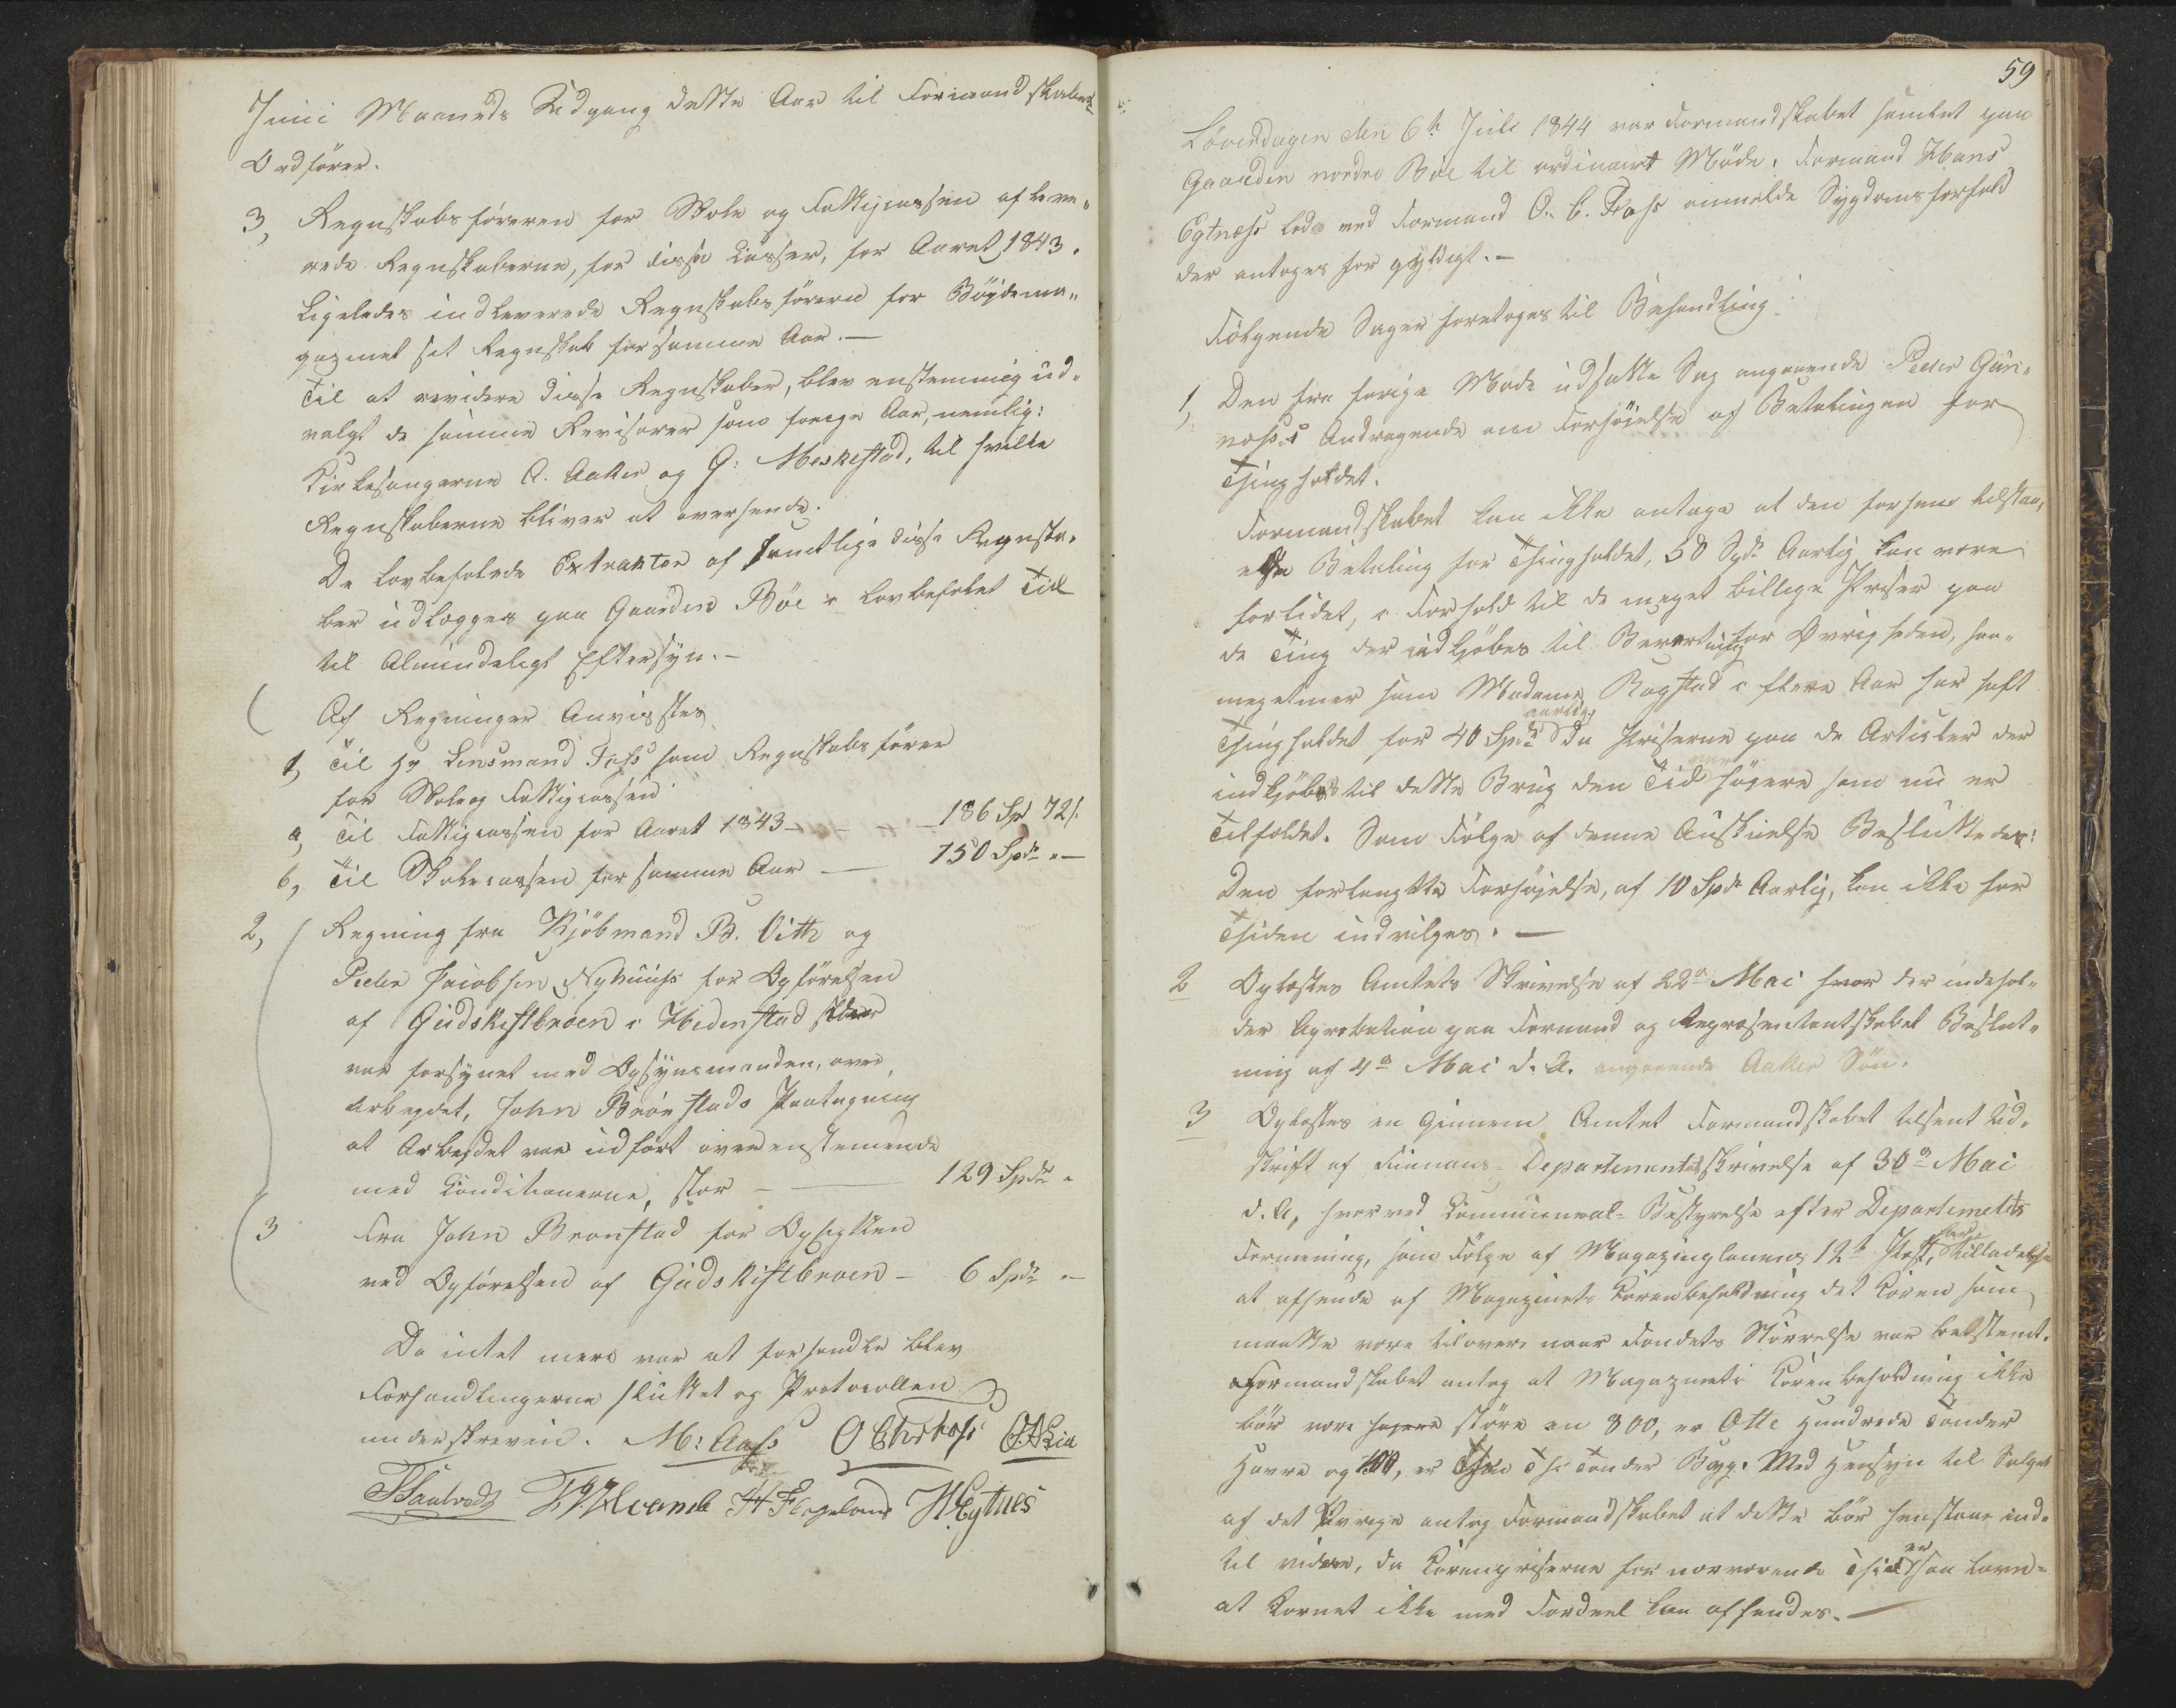 Junii Maaneds Udgang dette Aar til Formandskabets
Ordfører.
3, Regnskabsføreren for Skole og Fattigcassen afleve„
rede Regnskaberne, for disse Casser, for Aaret 1843.
Ligeledes indleverede Regnskabsføreren for Bøjdema„
gazinet sit Regnskab for samme Aar. —
Til at revidere disse Regnskaber, blev enstemmig ud„
valgt de samme Revisorer som forrige Aar, nemlig:
Kirkesangerne A. Aaker og G: Meskestad, til hvilke
Regnskaberne bliver at oversende.
De lovbefalede Extrakter af samtlige disse Regnska„
ber udlægges paa Gaarden Böe i lovbefalet Tid
til Almindeligt Eftersyn. —
Af Regninger Anvisstes
1, Til Hr Lensmand Fohs som Regnskabsfører
for Skole og Fattigcassen
a, Til Fattigcassen for Aaret 1843 — — — 186 Spd 72 s.
b, Til Skolecassen for samme Aar — 150 Spdr „ —
2, Regning fra Kjöbmand B. Vith og
Peder Jacobsen Nyhuus for Opførelsen
af Gudskistbroen i Hedenstad
var forsynet med Opsynsmanden, over
Arbeydet, John Brönstads Paategning
at Arbeydet var udført overenstemende
med Conditionerne, stor — — 129 Spdr „
3 Fra John Bronstad for Opsigten
ved Opførelsen af Gudskistbroen — 6 Spdr „ —
Da intet mere var at forhandle blev
Forhandlingerne sluttet og Protocollen
underskreven. M: Aass O Chr Fohs
H Fagelund H Egtnes
59
Løverdagen den 6te Juli 1844 var Formandskabet samlet paa
Gaarden nordre Böe til ordinairt Möde. Formand Hans
Egtnæss lod ved Formand O. C. Fohs anmelde Sygdomsforfald
der antoges for gyldigt. —
Følgende Sager foretoges til Behandling:
1, Den fra forige Møde udsatte Sag angaaende Peder Gun„
næss's Andragende om Forhøjelse af Betalingen for
Thingholdet.
Formandskabet kan ikke antage at den forhen tilstaa„
ede Betaling for Thingholdet, 50 Spdr Aarlig kan være
forlidet, i Forhold til de meget billige Priser paa
de Ting der indkjöbes til Bevertning for Øvrigheden, saa„
megetmer som Madame Rogstad i flere Aar har haft
Thingholdet for 40 Spdr aarlig da Priserne paa de Artikler der
indkjöbes til dette Brug den Tid var højere som nu er
Tilfældet. Som Følge af denne Anskuelse Besluttedes:
Den forlangte Forhøjelse, af 10 Spdr Aarlig, kan ikke for
Tiden indvilges. —
2 Oplæstes Amtets Skrivelse af 22de Mai hvor der indehol„
der Aprobation paa Formand og Repræsentantskabet Beslut„
ning af 4de Mai d. A. angaaende Aaker Søn.
3 Oplæstes en gjennem Amtet Formandskabet tilsent Ud„
skrift af Finans-Departementets skrivelse af 30de Mai
d. A, hvorved Communeal-Bestyrelse efter Departemetets
Formening, som Følge af Magazinplanens 12te Post, har Tilladelse
at afhende af Magazinets Kornbeholdning det Korn som
maatte være tilovers naar Fondets Størrelse var bestemt.
Formandskabet antog at Magazinets Kornbeholdning ikke
bør være støre en 800, er Otte Hundrede Tönder
Havre og 10, er Thi Tönder Byg. Med Hensyn til Salget
af det Øvrige antog Formandskabet at dette bør henstaae ind„
til videre, da Kornpriserne for nærværende Thid er saa lave
at Kornet ikke med Fordeel kan afhendes. —